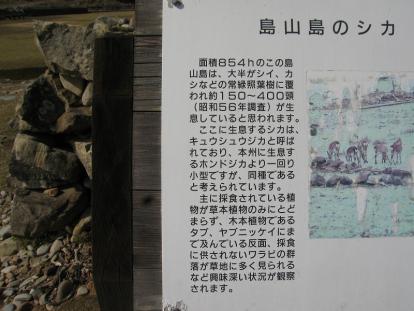 島山島のシカ
面積854hのこの島
山島は、大半がシイ、カ
シなどの常緑照葉樹に覆
われ約150~400頭
(昭和56年調査)が生
息していると思われます。
ここに生息するシカは、
キュウシュウジカと呼ば
れており、本州に生息す
るホンドジカより一回り
小型ですが、同種である
と考えられています。
主に採食されている植
物が草本植物のみにとど
まらず、木本植物である
タブ、ヤブニッケイにま
で及んでいる反面、採食
に供されないワラビの群
落が草地に多く見られる
など興味深い状況が観察
されます。